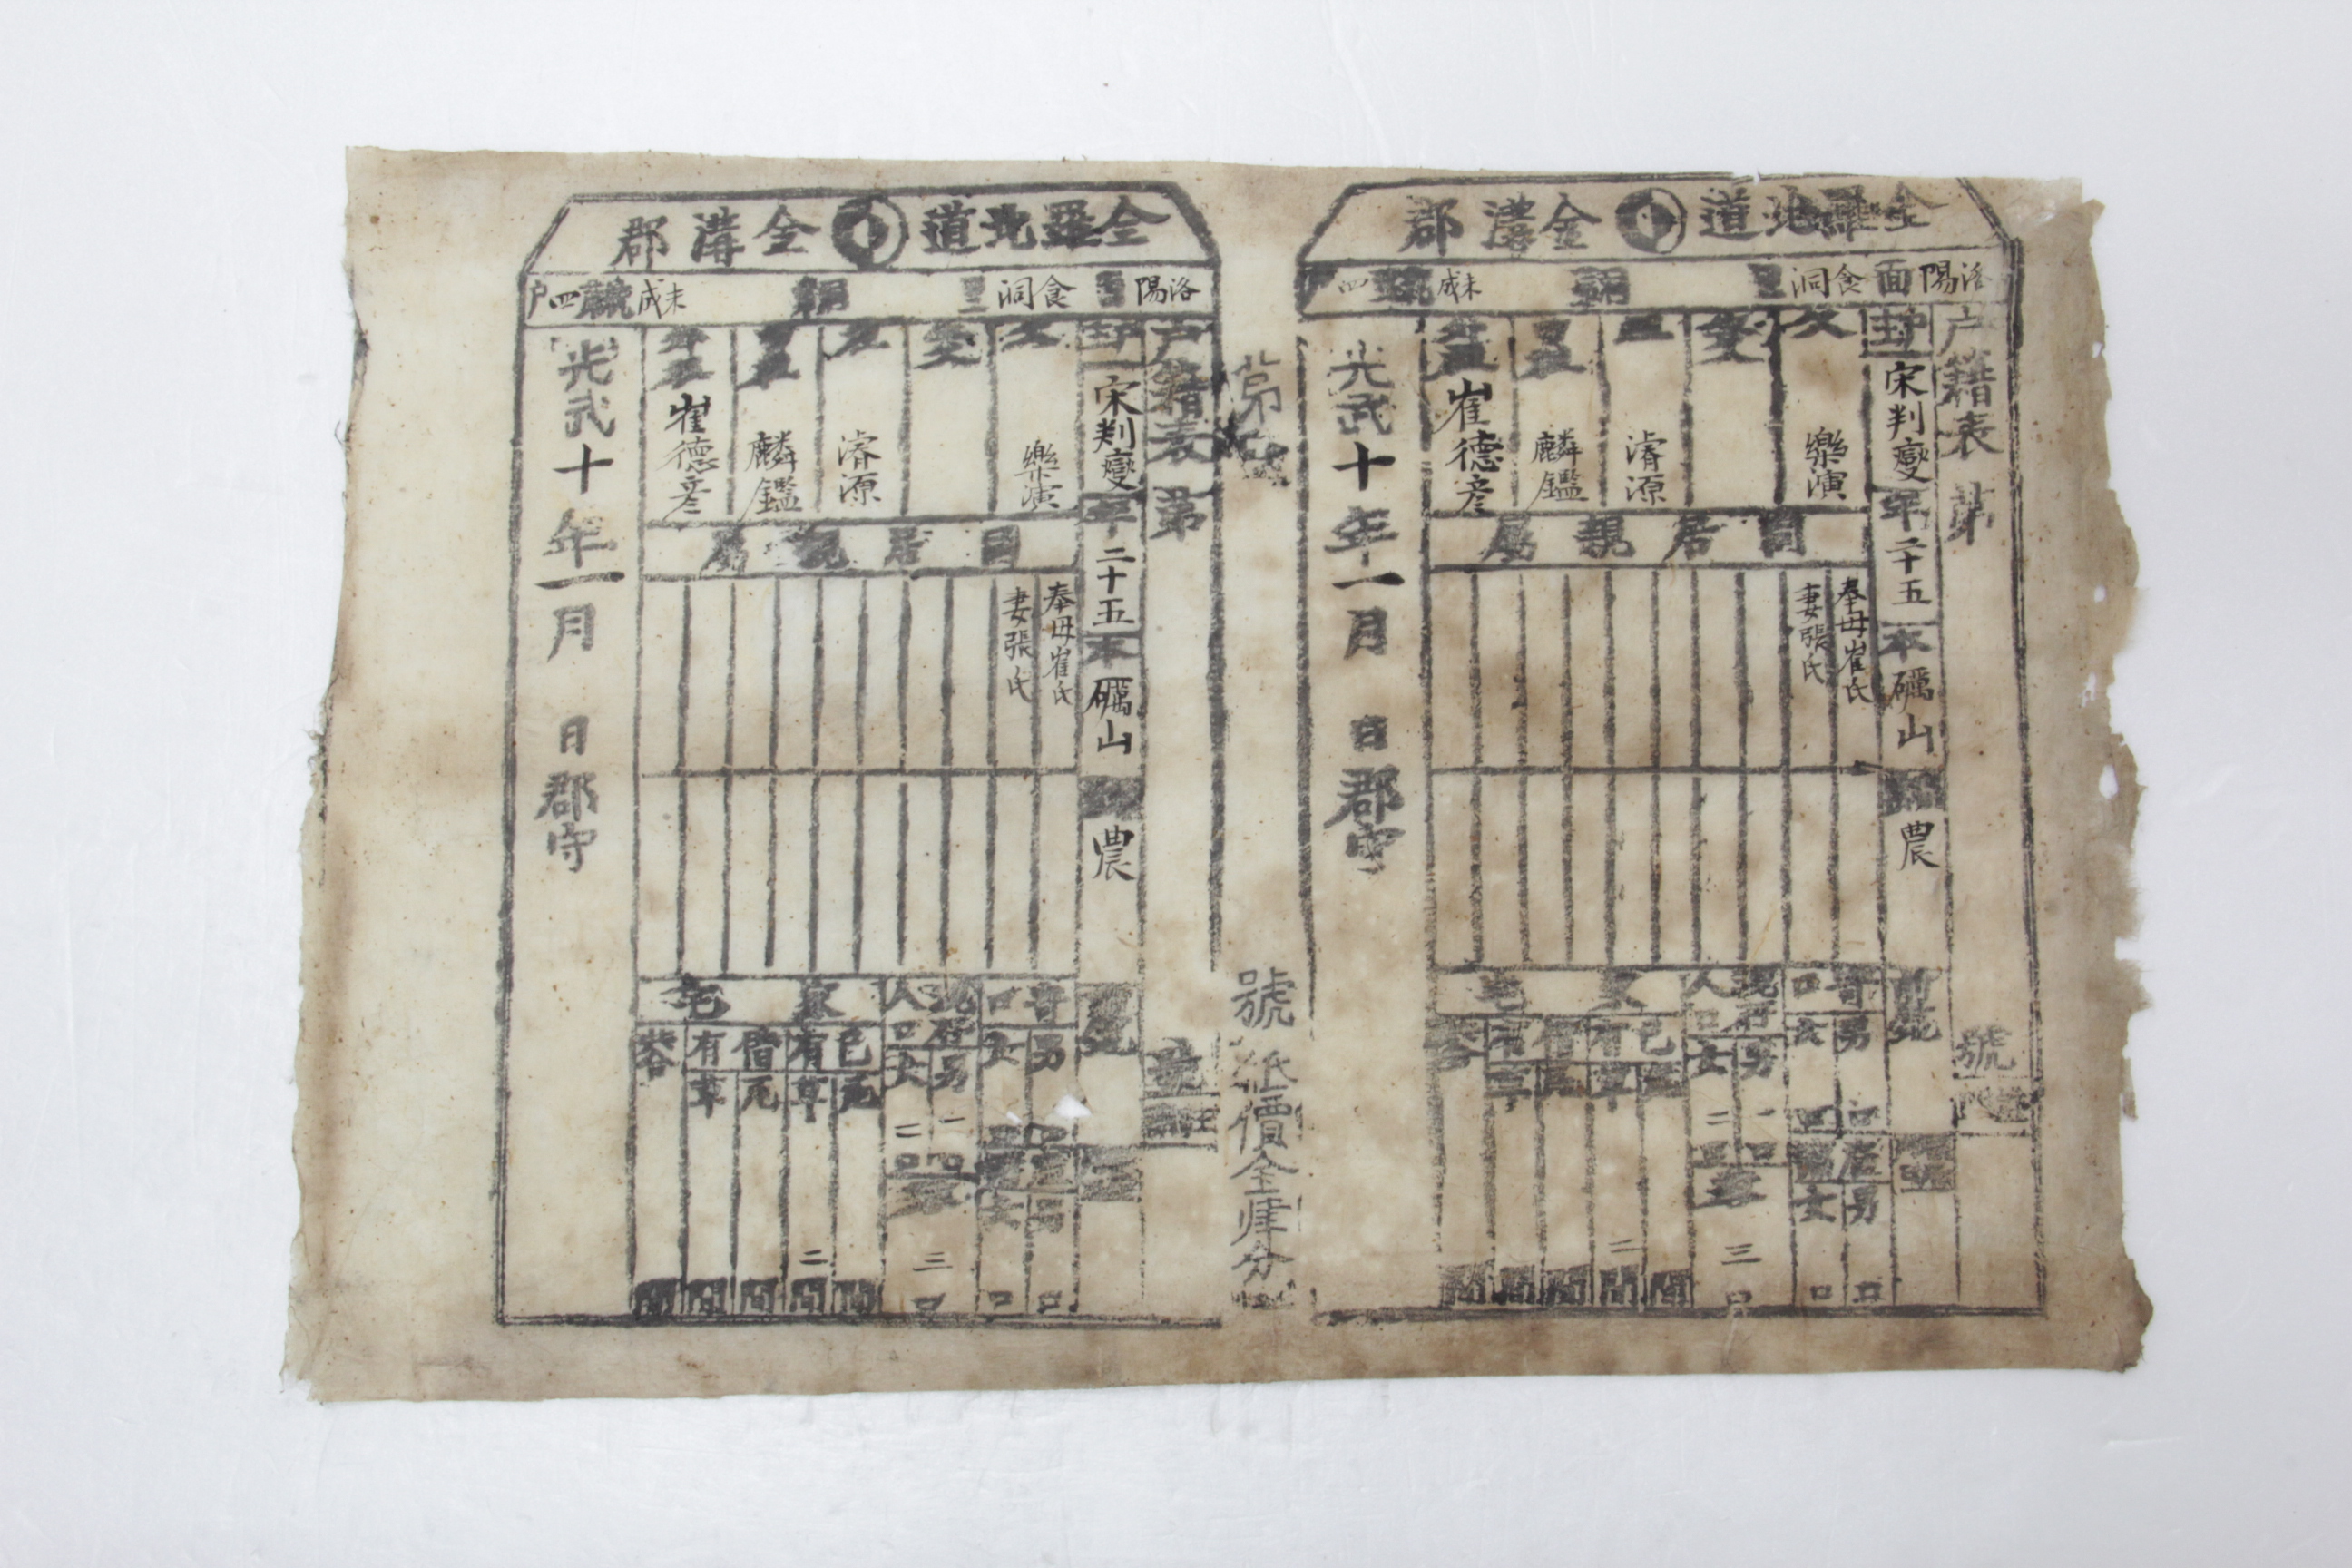 全羅北道 金溝郡
洛陽面 食洞里 統 未成號 四戶
戶籍表 第 號
戶主 宋判燮 年二十五 本礪山 職業 農
父 樂演
生父
祖 濬源
曾祖 麟鑑
外祖 崔德彦
同居親屬
奉母崔氏
妻張氏
寄口 男 口 女 口
現存人口 男 一口 女 二口
雇傭 男 口 女 口
共合 三口
家宅
己有 瓦 間 草 二間
借有 瓦 間 草 間
光武十年一月 日郡守
第 號 紙價金肆分
全羅北道 金溝郡
洛陽面 食洞里 統 未成號 四戶
戶籍表 第 號
戶主 宋判燮 年二十五 本礪山 職業 農
父 樂演
祖 濬源
曾祖 麟鑑
外祖 崔德彦
同居親屬
奉母崔氏
妻張氏
寄口 男 口 女 口
現存人口 男 一口 女 二口
雇傭 男 口 女 口
共合 三口
家宅
己有 瓦 間 草 二間
借有 瓦 間 草 間
光武十年一月 日郡守